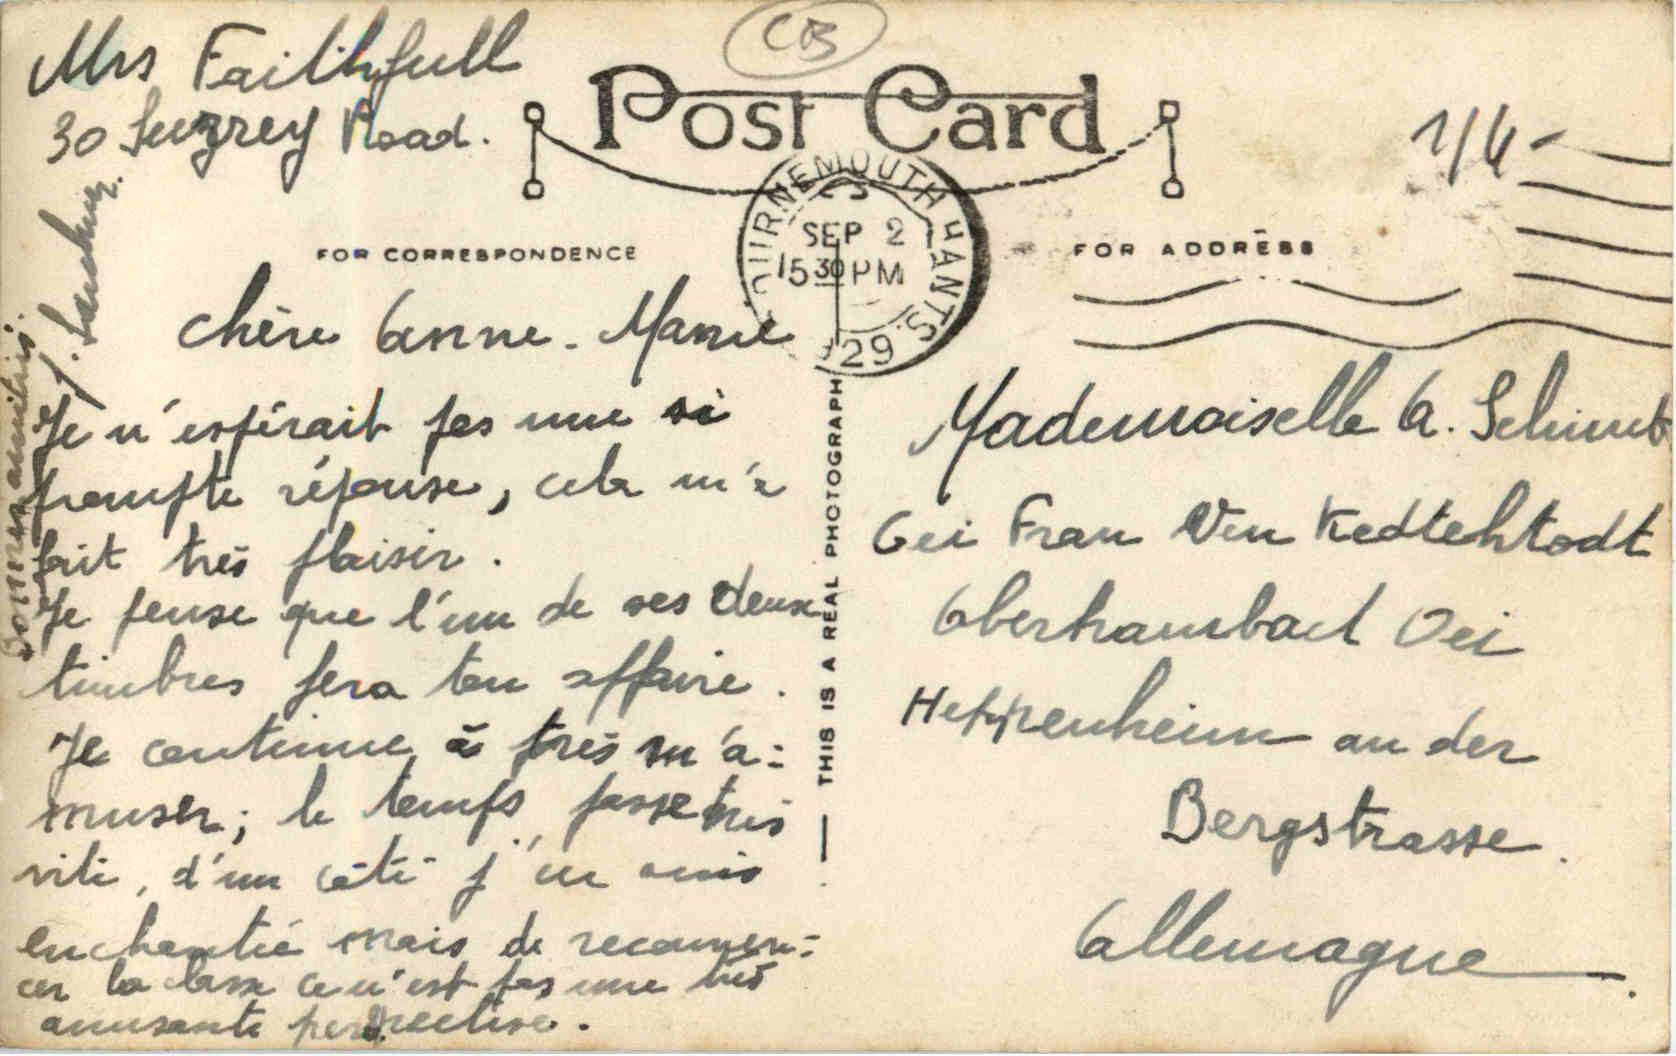 CB
Mrs Faithfull
30 Surrey Road.
Post Card
1/4
BOURNEMOUTH HANTS.
SEP 2
5 30 PM
29
FOR CORRESPONDENCE
FOR ADDRESS
Chère Anne-Marie
Je n'espérait pas une si
prompte réponse, cela m'a
fait très plaisir.
Je pense que l'un de ses deux
timbres fera ton affaire.
Je continue à très m'a-
muser; le temps passe très
vite, d'un côté j'en suis
enchantée mais de recommen-
cer la classe ce n'est pas une très
amusante perspective.
Bonnes amitiés.
J.
THIS IS A REAL PHOTOGRAPH
Mademoiselle A.
bei Frau
Oberhambach bei
Heppenheim an der
Bergstrasse.
Allemagne.